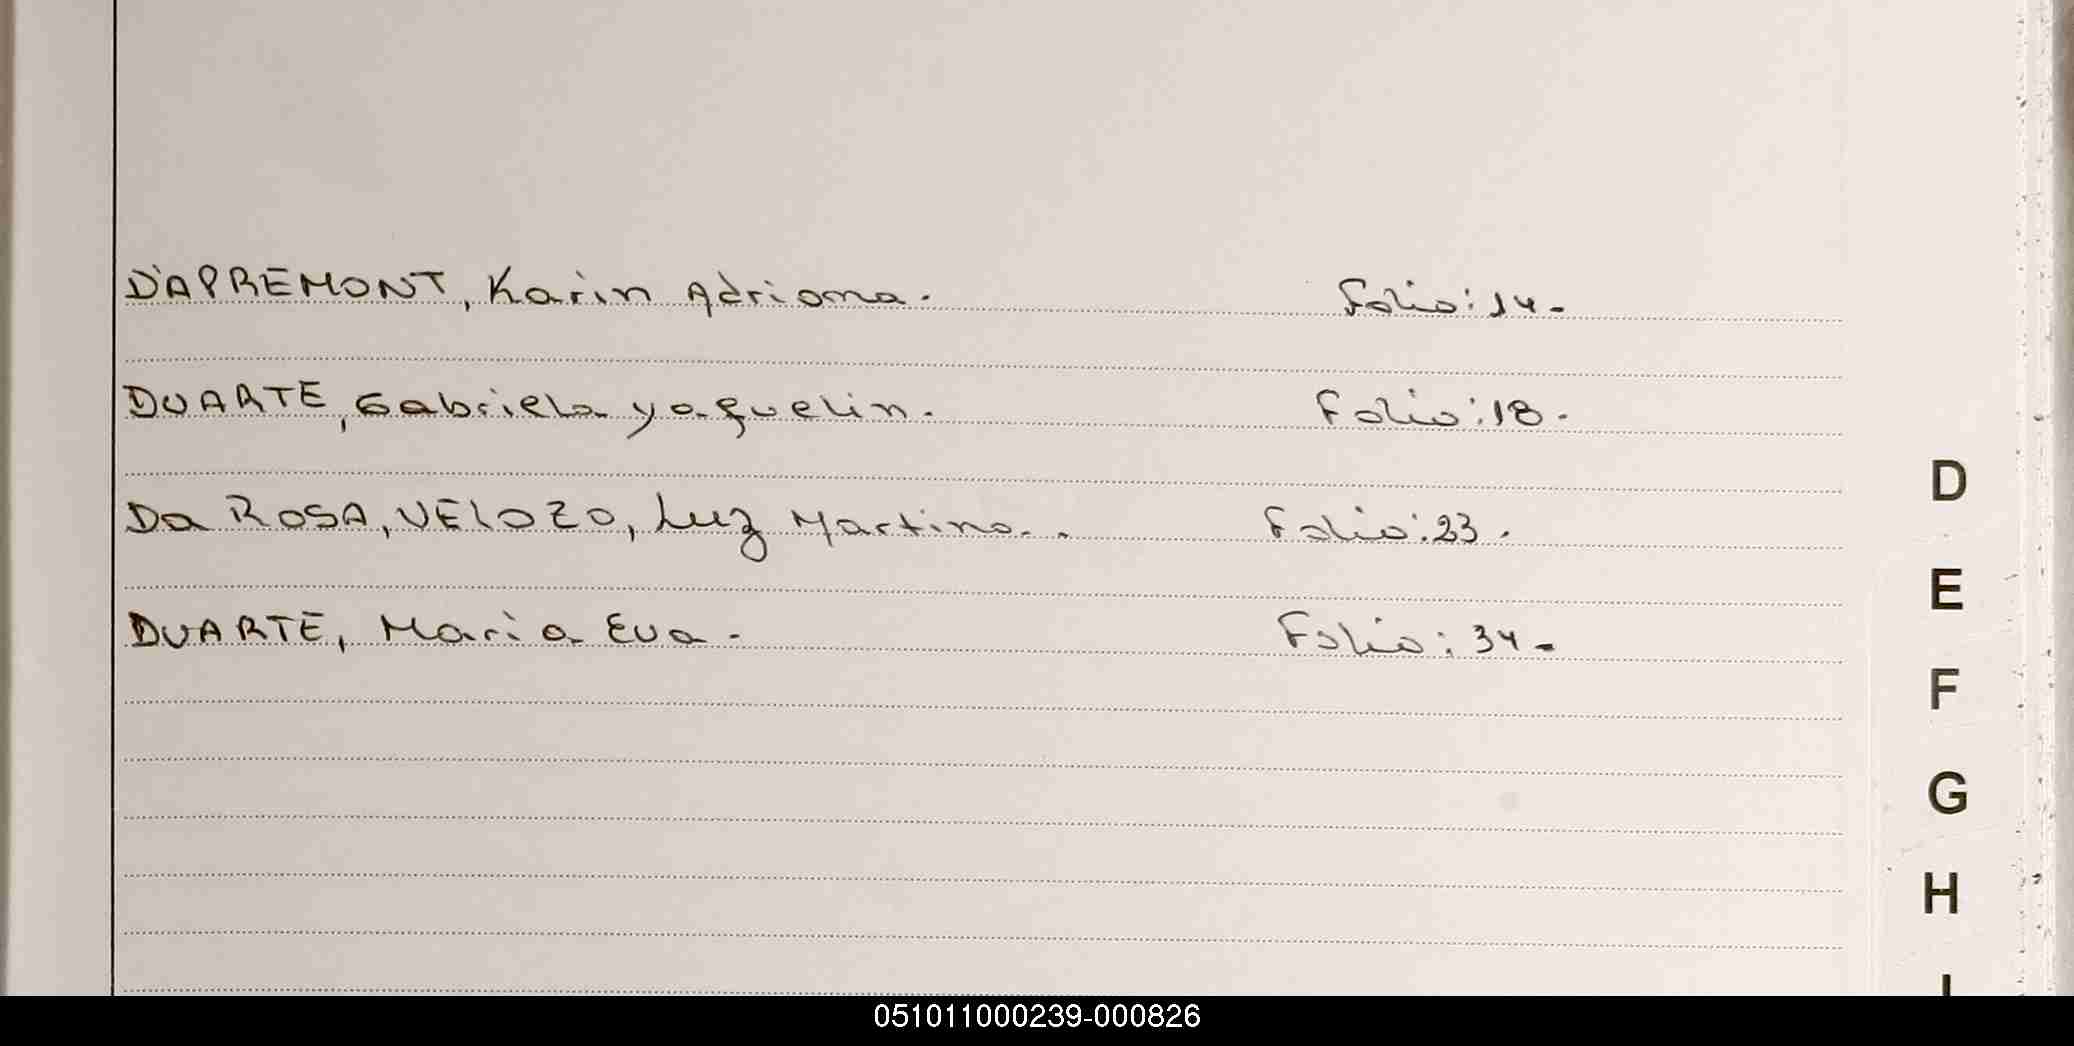 D'APREMONT, Karin Adriana. Folio: 14-
DUARTE, Gabriela yaquelin. Folio: 18.
Da ROSA, VELOZO, Luz Martina.. Folio: 23.
DUARTE, Maria Eva. Folio: 34-
D
E
F
G
H
I
051011000239-000826